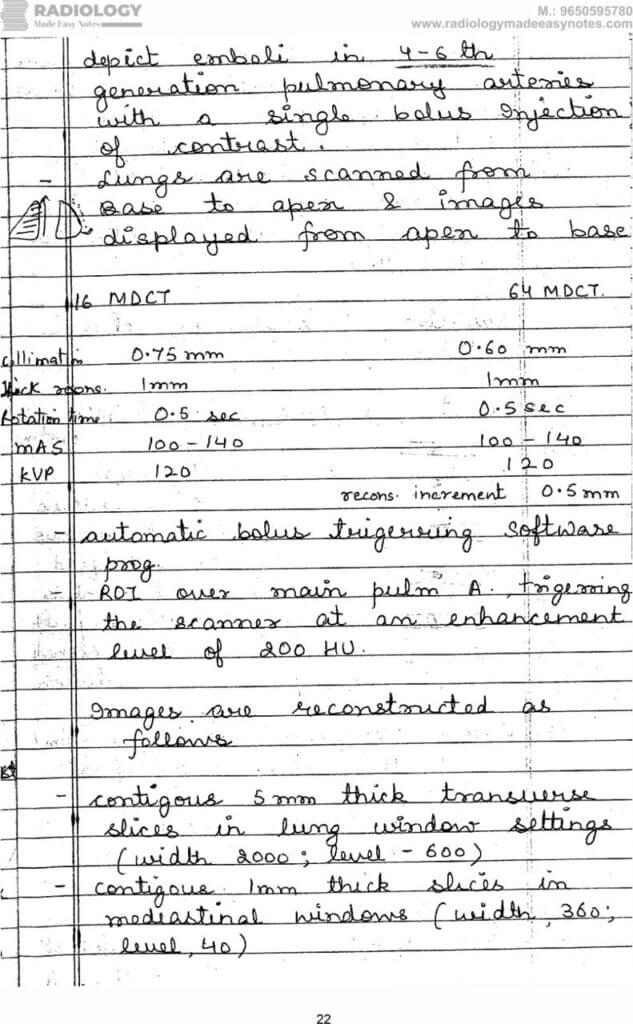 RADIOLOGY
Made Easy Notes
M.: 9650595780
www.radiologymadeeasynotes.com
depict emboli in 4-6 th
generation pulmonary arteries
with a single bolus injection
of contrast.
- Lungs are scanned from
Base to apex & images
displayed from apex to base
16 MDCT 64 MDCT.
collimation 0.75 mm 0.60 mm
thick recons. 1mm 1mm
Rotation time: 0.5 sec 0.5 sec
mAS 100-140 100-140
KVP 120 120
recons. increment 0.5mm
- automatic bolus trigerring software
prog.
- ROI over main pulm A. trigerring
the scanner at an enhancement
level of 200 HU.
Images are reconstructed as
follows
- contigous 5mm thick transverse
slices in lung window settings
(width 2000; level - 600)
- contigous 1mm thick slices in
mediastinal windows (width, 360;
level, 40)
22